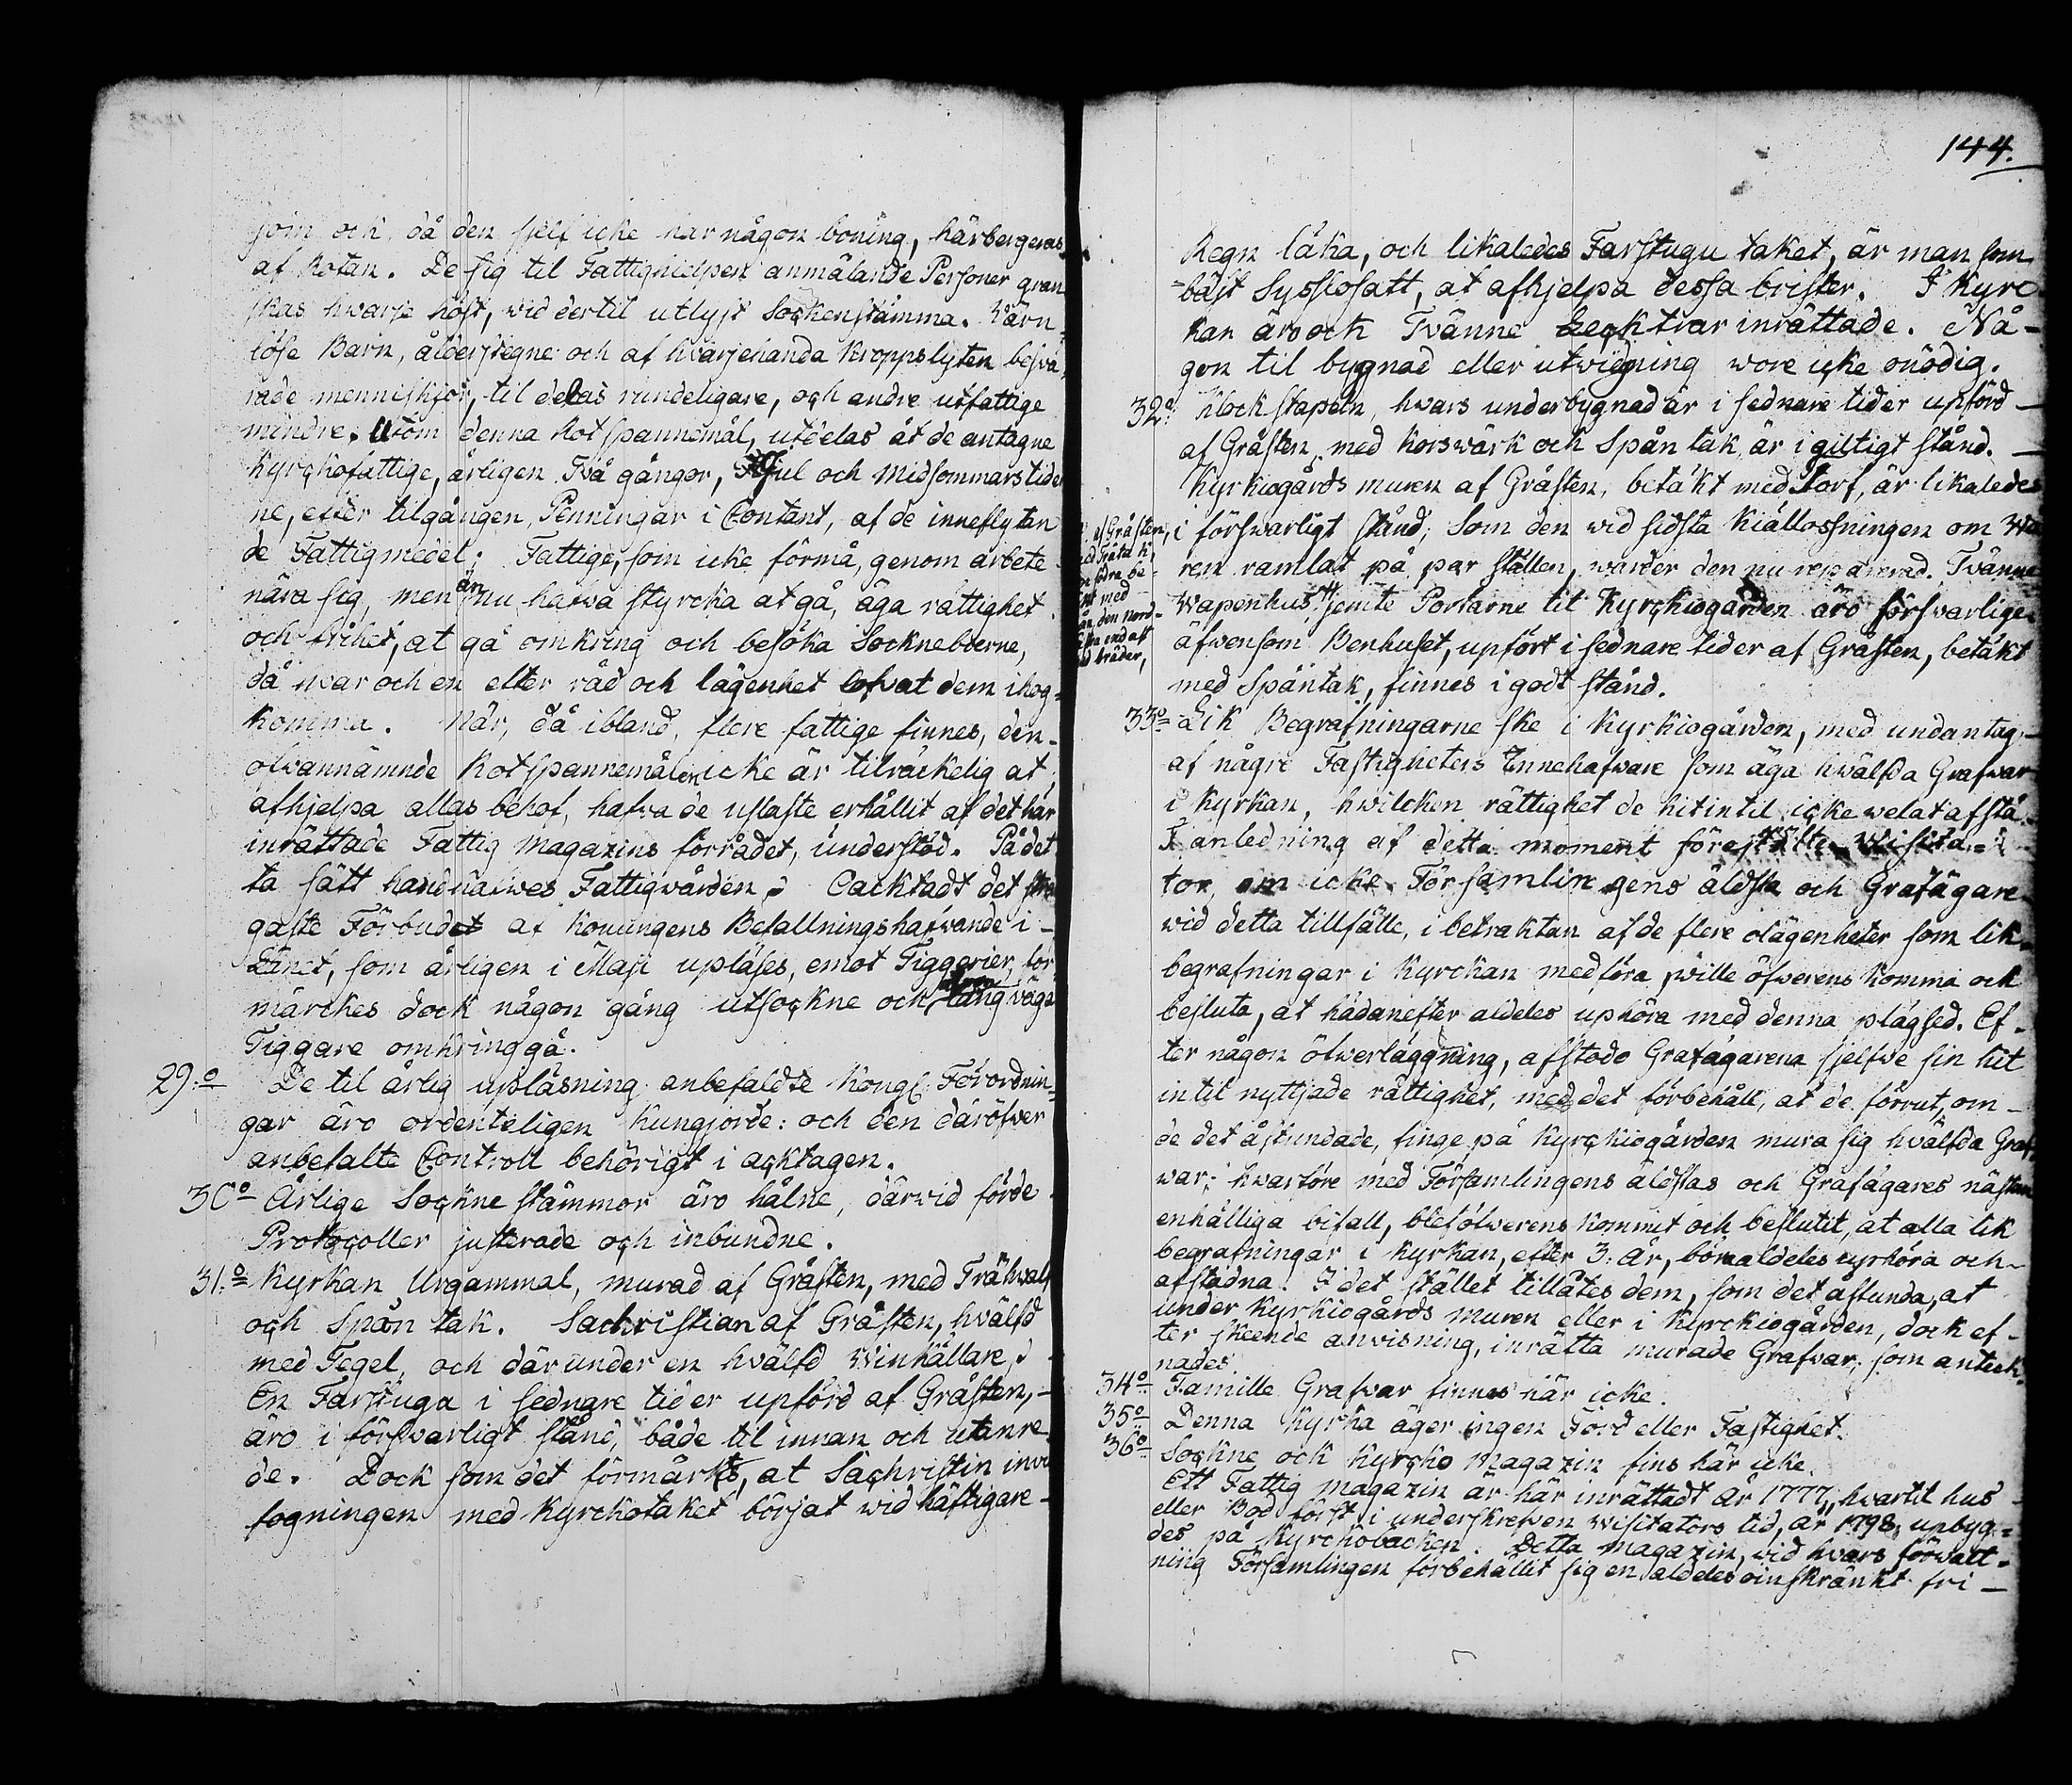 som och, då den sjelf icke har någon boning, härbergeras
af Rotan. De sig til Fattighielpen anmälande Personer gran
skas hwarje höst, wid dertil utlyst Sockenstämma. Wärn-
löse Barn, ålderstegne och af hvarjehanda kroppslyten beswä-
rade menniskjor, til delas rundeligare, och andre utfattige
mindre. Utom denna Rotspannemål, utdelas åt de antagne
Kyrckofattige, årligen Två gångor, Jul och Midsommarstider
ne, efter tilgången, Penningar i Contant, af de inneflytan
de Fattigmedel; Fattige, som icke förmå, genom arbete
nära sig, men ännu hafwa styrcka at gå, äga rättighet
och frihet, at gå omkring och besöka Sockneboerne,
då hwar och en efter råd och lägenhet lofvat dem ihog-
komma. När, då ibland, flere fattige finnes, den
ofwannämnde Rotspannemålen icke är tilräckelig at
afhjelpa allas behof, hafwa de uslaste erhållit af det här
inrättade Fattig Magazins förrådet, understöd. På det
ta sätt handhafwes Fattigvården. Oacktadt det strän
gaste Förbudet af Konungens Befallningshafwande i
Länet, som årligen i Maji upläses, emot Tiggerier, för
märckes dock någon gång utsockne och långväga
Tiggare omkringgå.
29:o De til årlig upläsning anbefaldte Kongl. Förordnin-
gar äro ordenteligen kungjorde: och den däröfwer
anbefalte Controll behörigt i acktagen.
30:o Årlige Sockne stämmor äro hålne, därwid förde
Protocoller justerade och inbundne.
31:o Kyrkan Urgammal, murad af Gråsten, med Trähwalf
och Spån tak. Sachristian af Gråsten, hvälfd
med Tegel, och därunder en hvälfd Winkällare.
En Farstuga i sednare tider upförd af Gråsten,
äro i förswarligt stånd, både til innan och utanre
de. Dock som det förmärkts, at Sachristin inwi
fogningen med Kyrckotaket börjat wid häftigare
144.
Regn läka, och likaledes Farstugu taket, är man som
bäst Sysslosatt, at afhjelpa dessa brister. I Kyrc
kan äro och Tvänne Lecktrar inrättade. Nå-
gon til bygnad eller utwidgning wore icke onödig.
32:o Klockstapeln, hwars underbygnad är i sednare tider upförd
af Gråsten, med Korswärk och Spån tak, är i giltigt stånd.
Kyrkiogårds muren af Gråsten, betäkt med Torf, är likaledes
i förswarligt stånd; Som den wid sidsta Kiällossningen om Wå
ren ramlat på par ställen, warder den nu reparerad. Tvänne
Wapenhus, jemte Portarne til Kyrckiogården äro förswarlige
äfwensom Benhuset, upfört i sednare tider af Gråsten, betäkt
med Spåntak, finnes i godt stånd.
af Gråsten,
med Trätak
södra be-
med
den Nord-
endast
bräder,
33:o Lik Begrafningarne ske i Kyrkiogården, med undantag
af någre Fastigheters Innehafware som äga hwälfda Grafwar
i Kyrkan, hwilcken rättighet de hitintil icke welat afstå.
I anledning af detta moment förestälte Wisita-
tor, om icke Församlingens äldsta och Grafägare
wid detta tillfälle, i betraktan af de flere olägenheter som lik
begrafningar i Kyrckan medföra, wille öfwerens komma och
besluta, at hädanefter aldeles uphöra med denna plägsed. Ef-
ter någon öfwerläggning, afstodo Grafägarena sjelfwe sin hit
intil nyttjade rättighet, med det förbehåll, at de förrut, om
de det åstundade, finge på Kyrckiogården mura sig hwälfda Graf
war; hwarföre med Församlingens äldstas och Grafägares nästan
enhälliga bifall, blef öfwerens kommit och beslutit, at alla lik
begrafningar i Kyrkan, efter 3: år, böra aldeles uphöra och
afstadna. I det stället tillåtes dem, som det åstunda, at
under Kyrkiogårds muren eller i Kyrckiogården, dock ef-
ter skeende anvisning, inrätta murade Grafwar; som anteck
nades.
34:o Famille Grafwar finnes här icke.
35:o Denna Kyrka äger ingen Jord eller Fastighet.
36:o Sockne och Kyrcko Magazin fins här icke.
Ett Fattig Magazin är här inrättadt år 1777, hwartil hus
eller Bod först i underskrefwen Wisitators tid, år 1798, upbyg-
des på Kyrckobacken. Detta Magazin, wid hwars förwalt-
ning Församlingen förbehållit sig en aldeles oinskränkt fri-